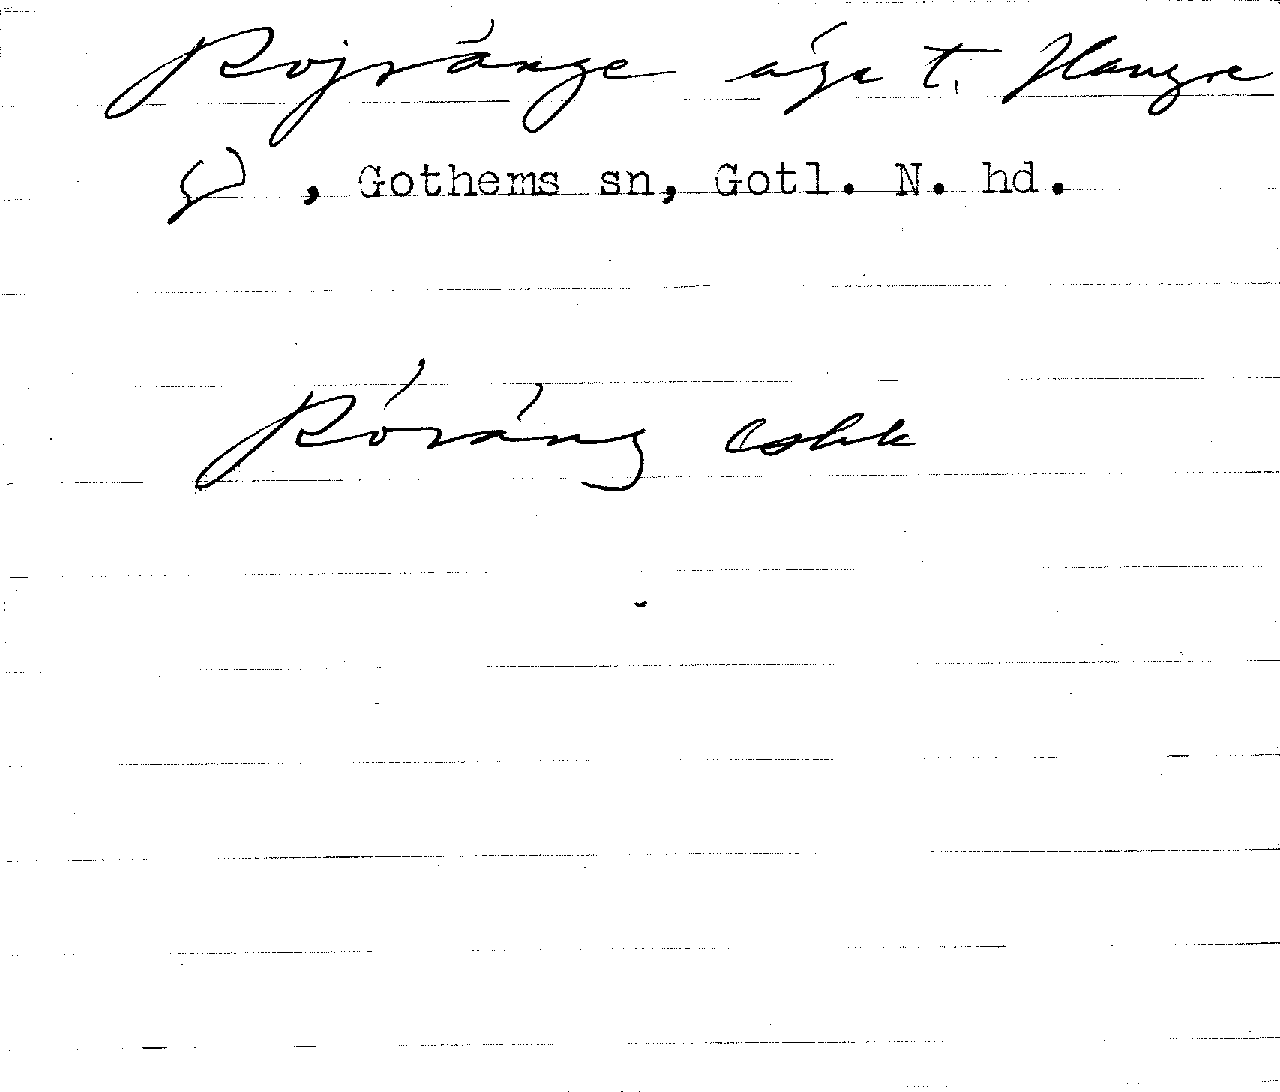 Rojränge äga t. Hangre
, Gothems sn, Gotl. N. hd.
Róráng